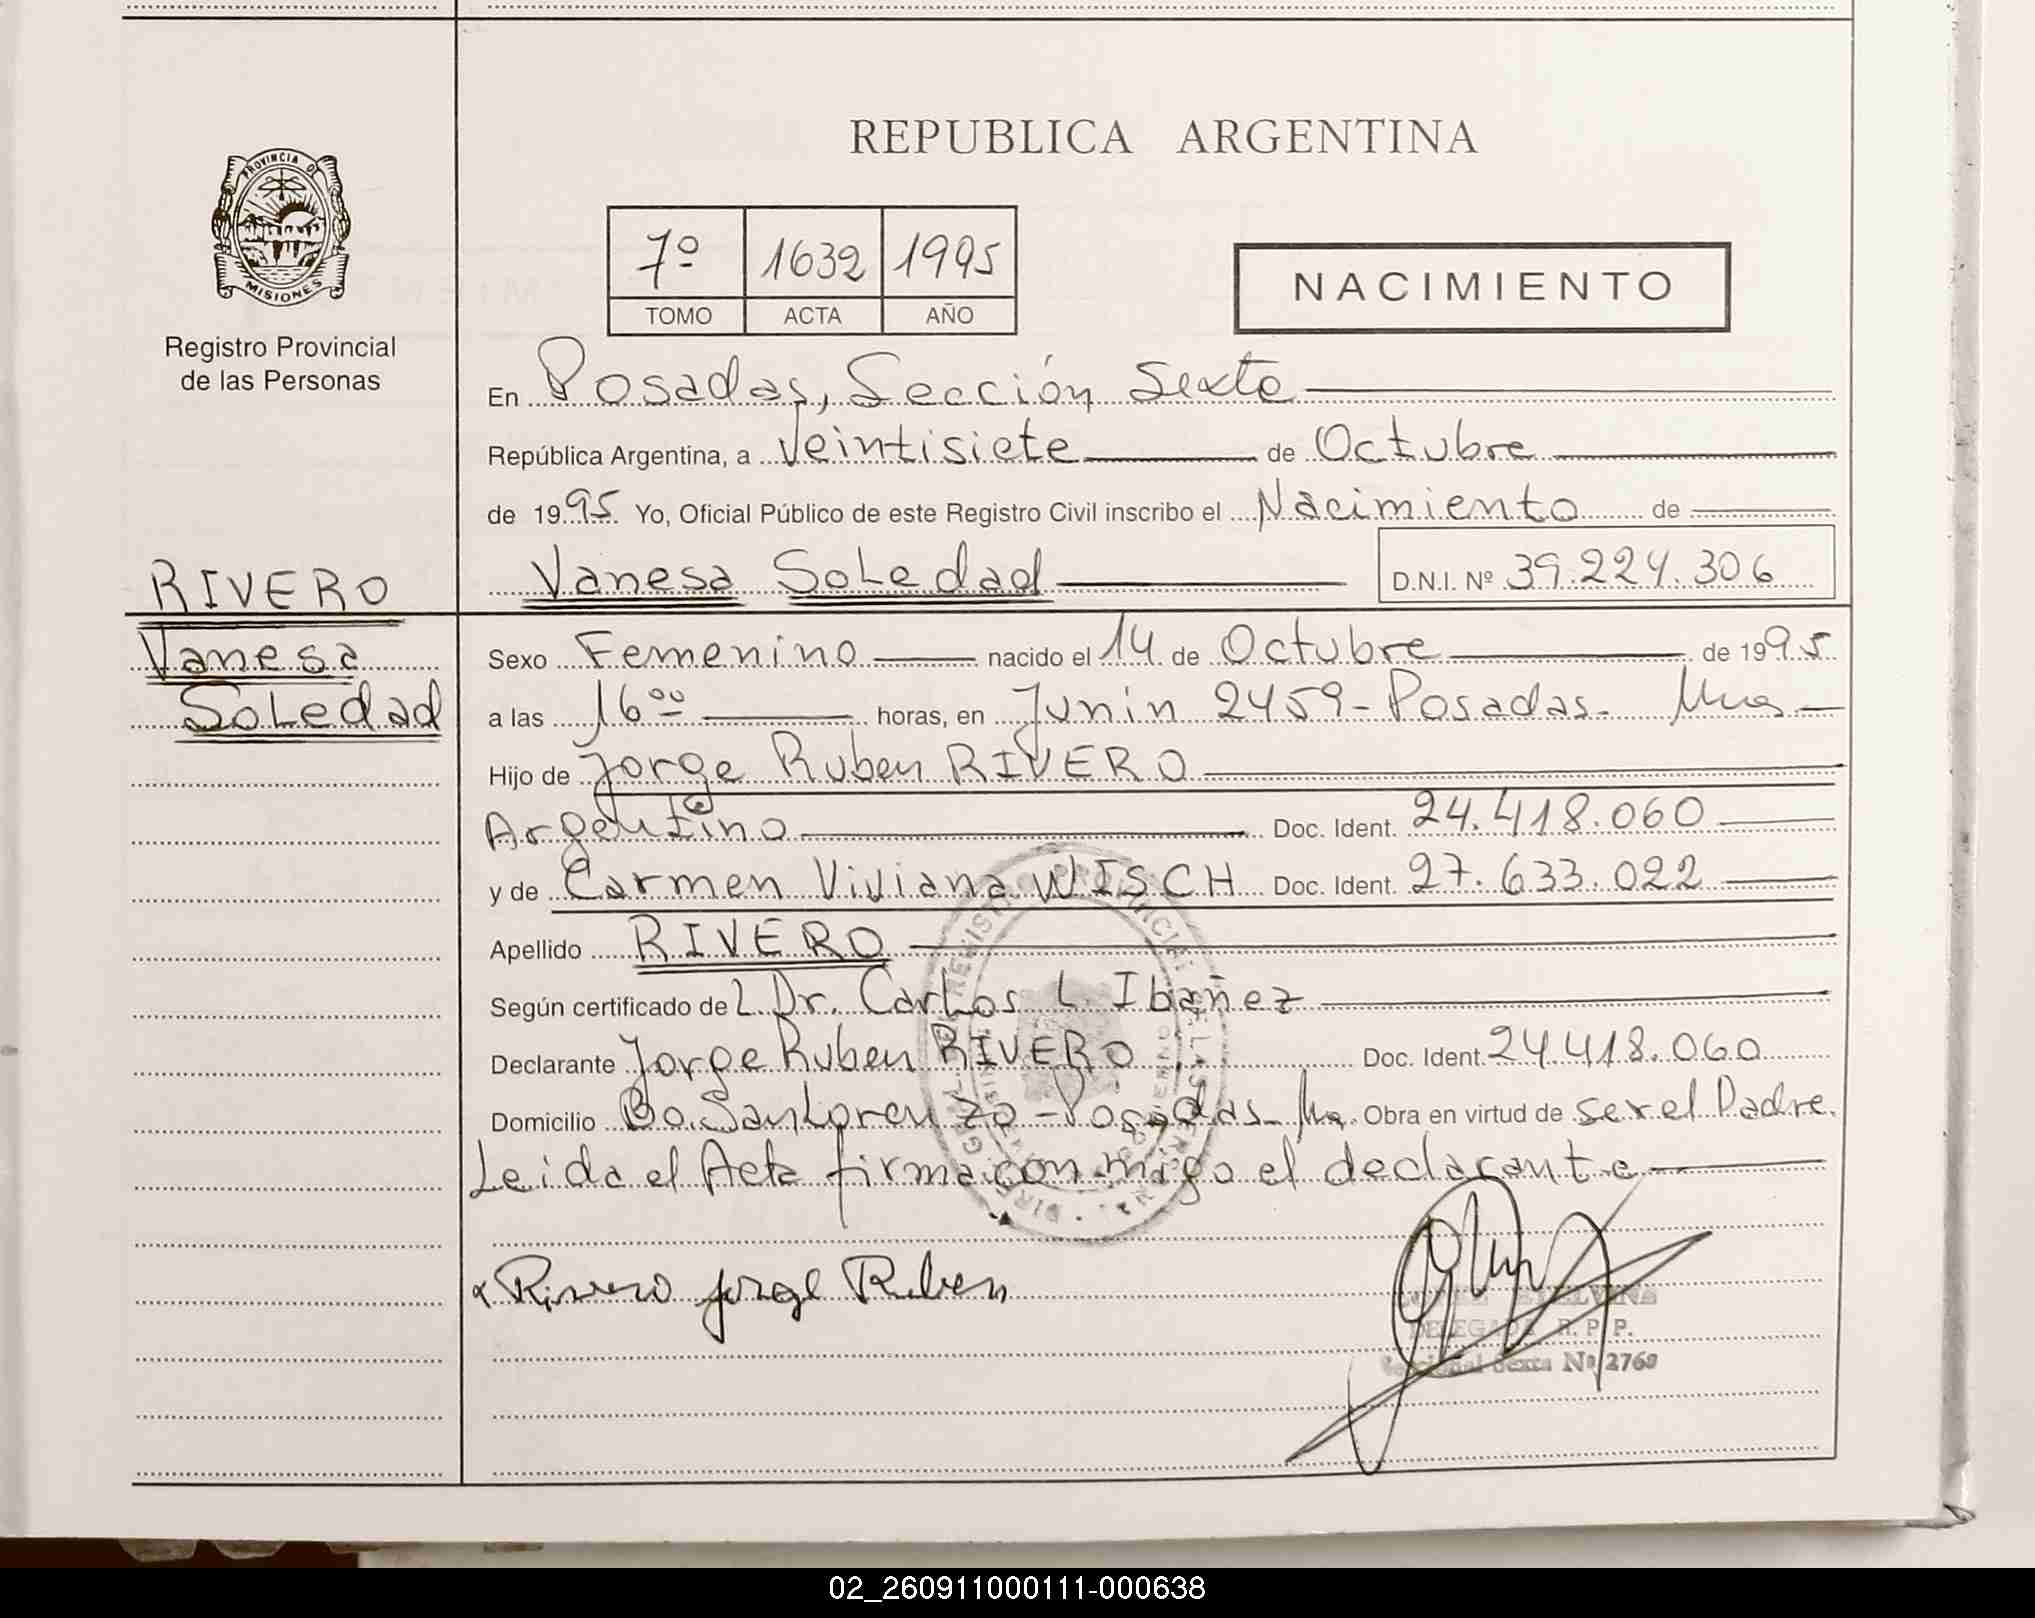 REPUBLICA ARGENTINA
PROVINCIA DE
MISIONES
Registro Provincial
de las Personas
7º 1632 1995
TOMO ACTA AÑO
NACIMIENTO
En Posadas, Sección Sexta
República Argentina, a Veintisiete de Octubre
de 1995 Yo, Oficial Público de este Registro Civil inscribo el Nacimiento de
Vanesa Soledad D.N.I. Nº 39.224.306
RIVERO
Vanesa
Soledad
Sexo Femenino nacido el 14 de Octubre de 1995
a las 16ºº horas, en Junin 2459 - Posadas - Mnes
Hijo de Jorge Ruben RIVERO
Argentino Doc. Ident. 24.418.060
y de Carmen Viviana WISCH Doc. Ident. 27.633.022
Apellido RIVERO
Según certificado del Dr. Carlos L. Ibañez
Declarante Jorge Ruben RIVERO Doc. Ident. 24.418.060
Domicilio Bo. San Lorenzo - Posadas - Mn. Obra en virtud de ser el Padre.
Leida el Acta firma con migo el declarante
x Rivero Jorge Ruben
DELEGADA R. P. P.
Seccional Sexta Nº 2760
02_260911000111-000638